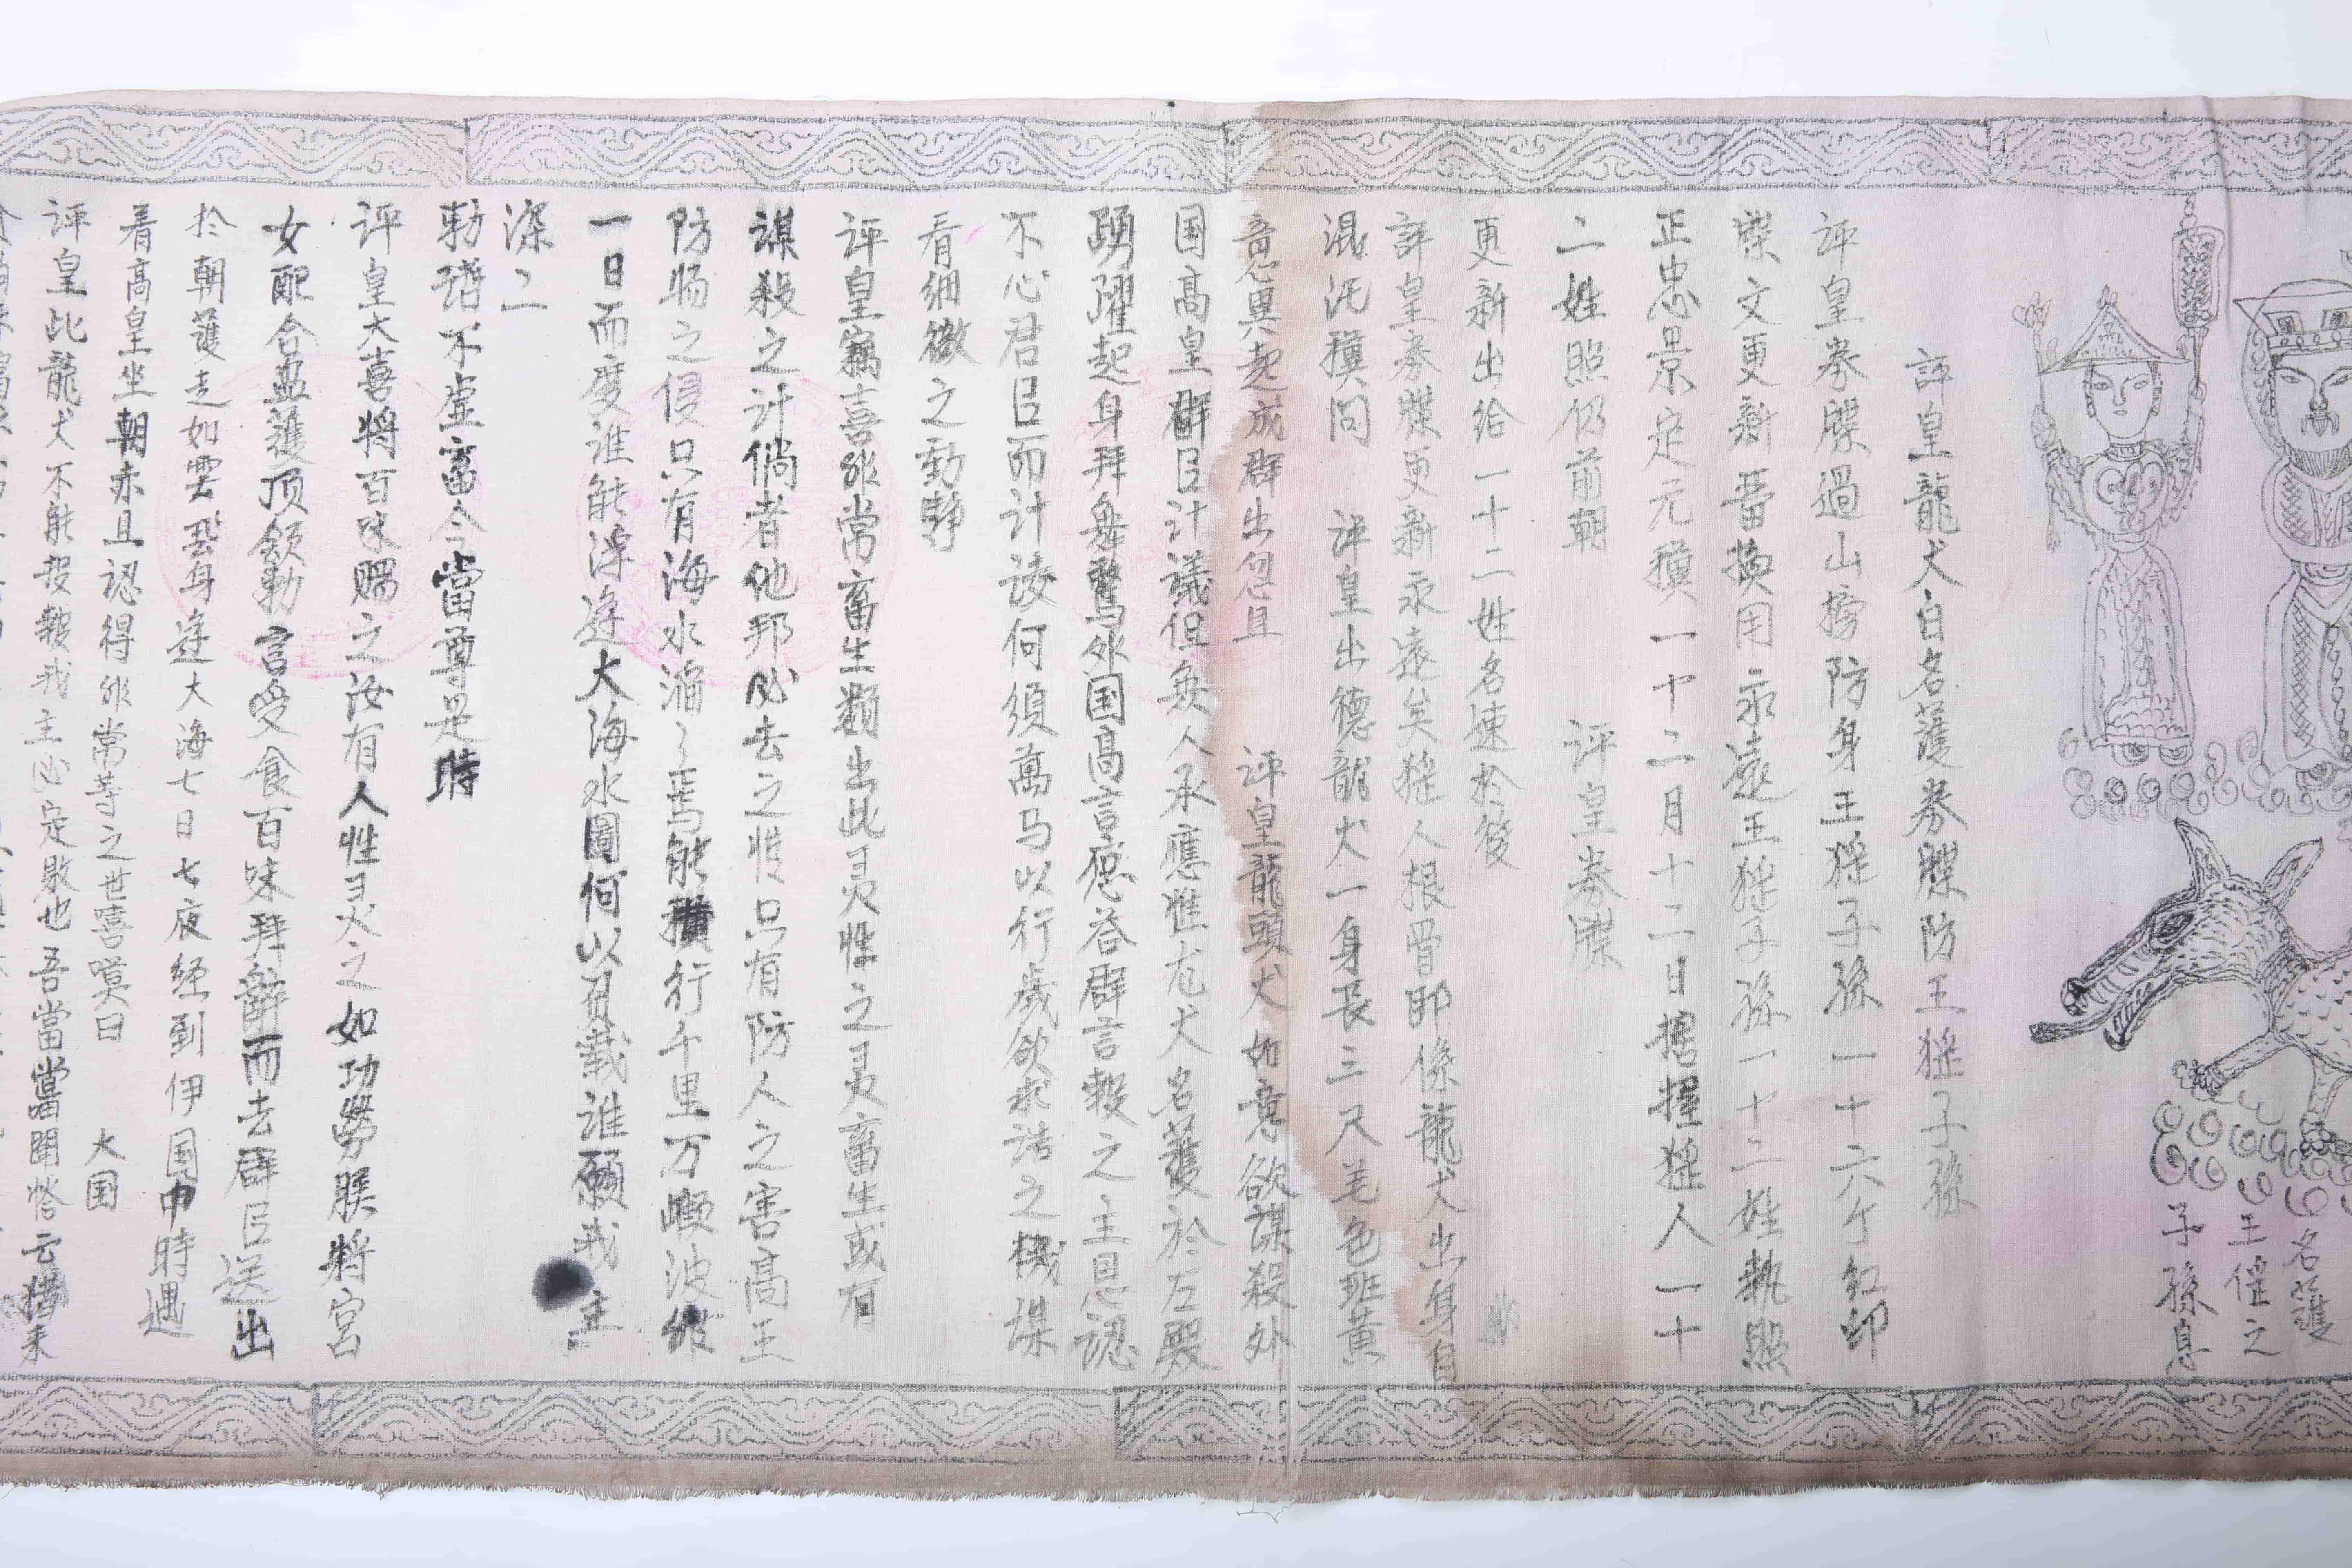 名護
王傜之
子孫息
評皇龍犬白名護券牒防王猺子孫
評皇券牒過山榜防身王猺子孫一十六个紅印
牒文更新番換用永遠王猺子孫一十二姓執照
正忠景定元積一十二月十二日搃握猺人一十
二姓照仍前朝 評皇券牒
更新出給一十二姓名速於後
評皇券牒更新永遠矣猺人根骨即係龍犬出身自
混沌積间 評皇出德龍犬一身長三尺毛色班黄
意異起成群出忽且 評皇龍頭犬如意欲謀殺外
国高皇群臣计議但無人承應惟尨犬名護於左殿
踴躍起身拜舞驚外国高言應答群言報之主恩認
不心君臣而计該何須萬马以行歲欲求诰之機谋
看细微之動静
評皇竊喜非常畜生類出此灵性之灵畜生或有
謀殺之计倘者他邦必去之惟只有防人之害高王
防肠之侵只有海水滔々焉能積行千里万嶮波維
一日而度谁能浮逄大海水圖何以負載谁願我主
深二
勅諎不虚畜今當尊是時
評皇大喜将百味赐之汝有人性灵之如功勞朕將宮
女配合盖護顶额勅言受食百味拜辭而去群臣送出
於朝護走如雲飛身逄大海七日七夜经到伊国中時遇
看高皇坐朝赤且認得非常等之世喜嘆曰 大国
評皇此龍犬不能投報我主必定敗也吾當當聞答云猎来